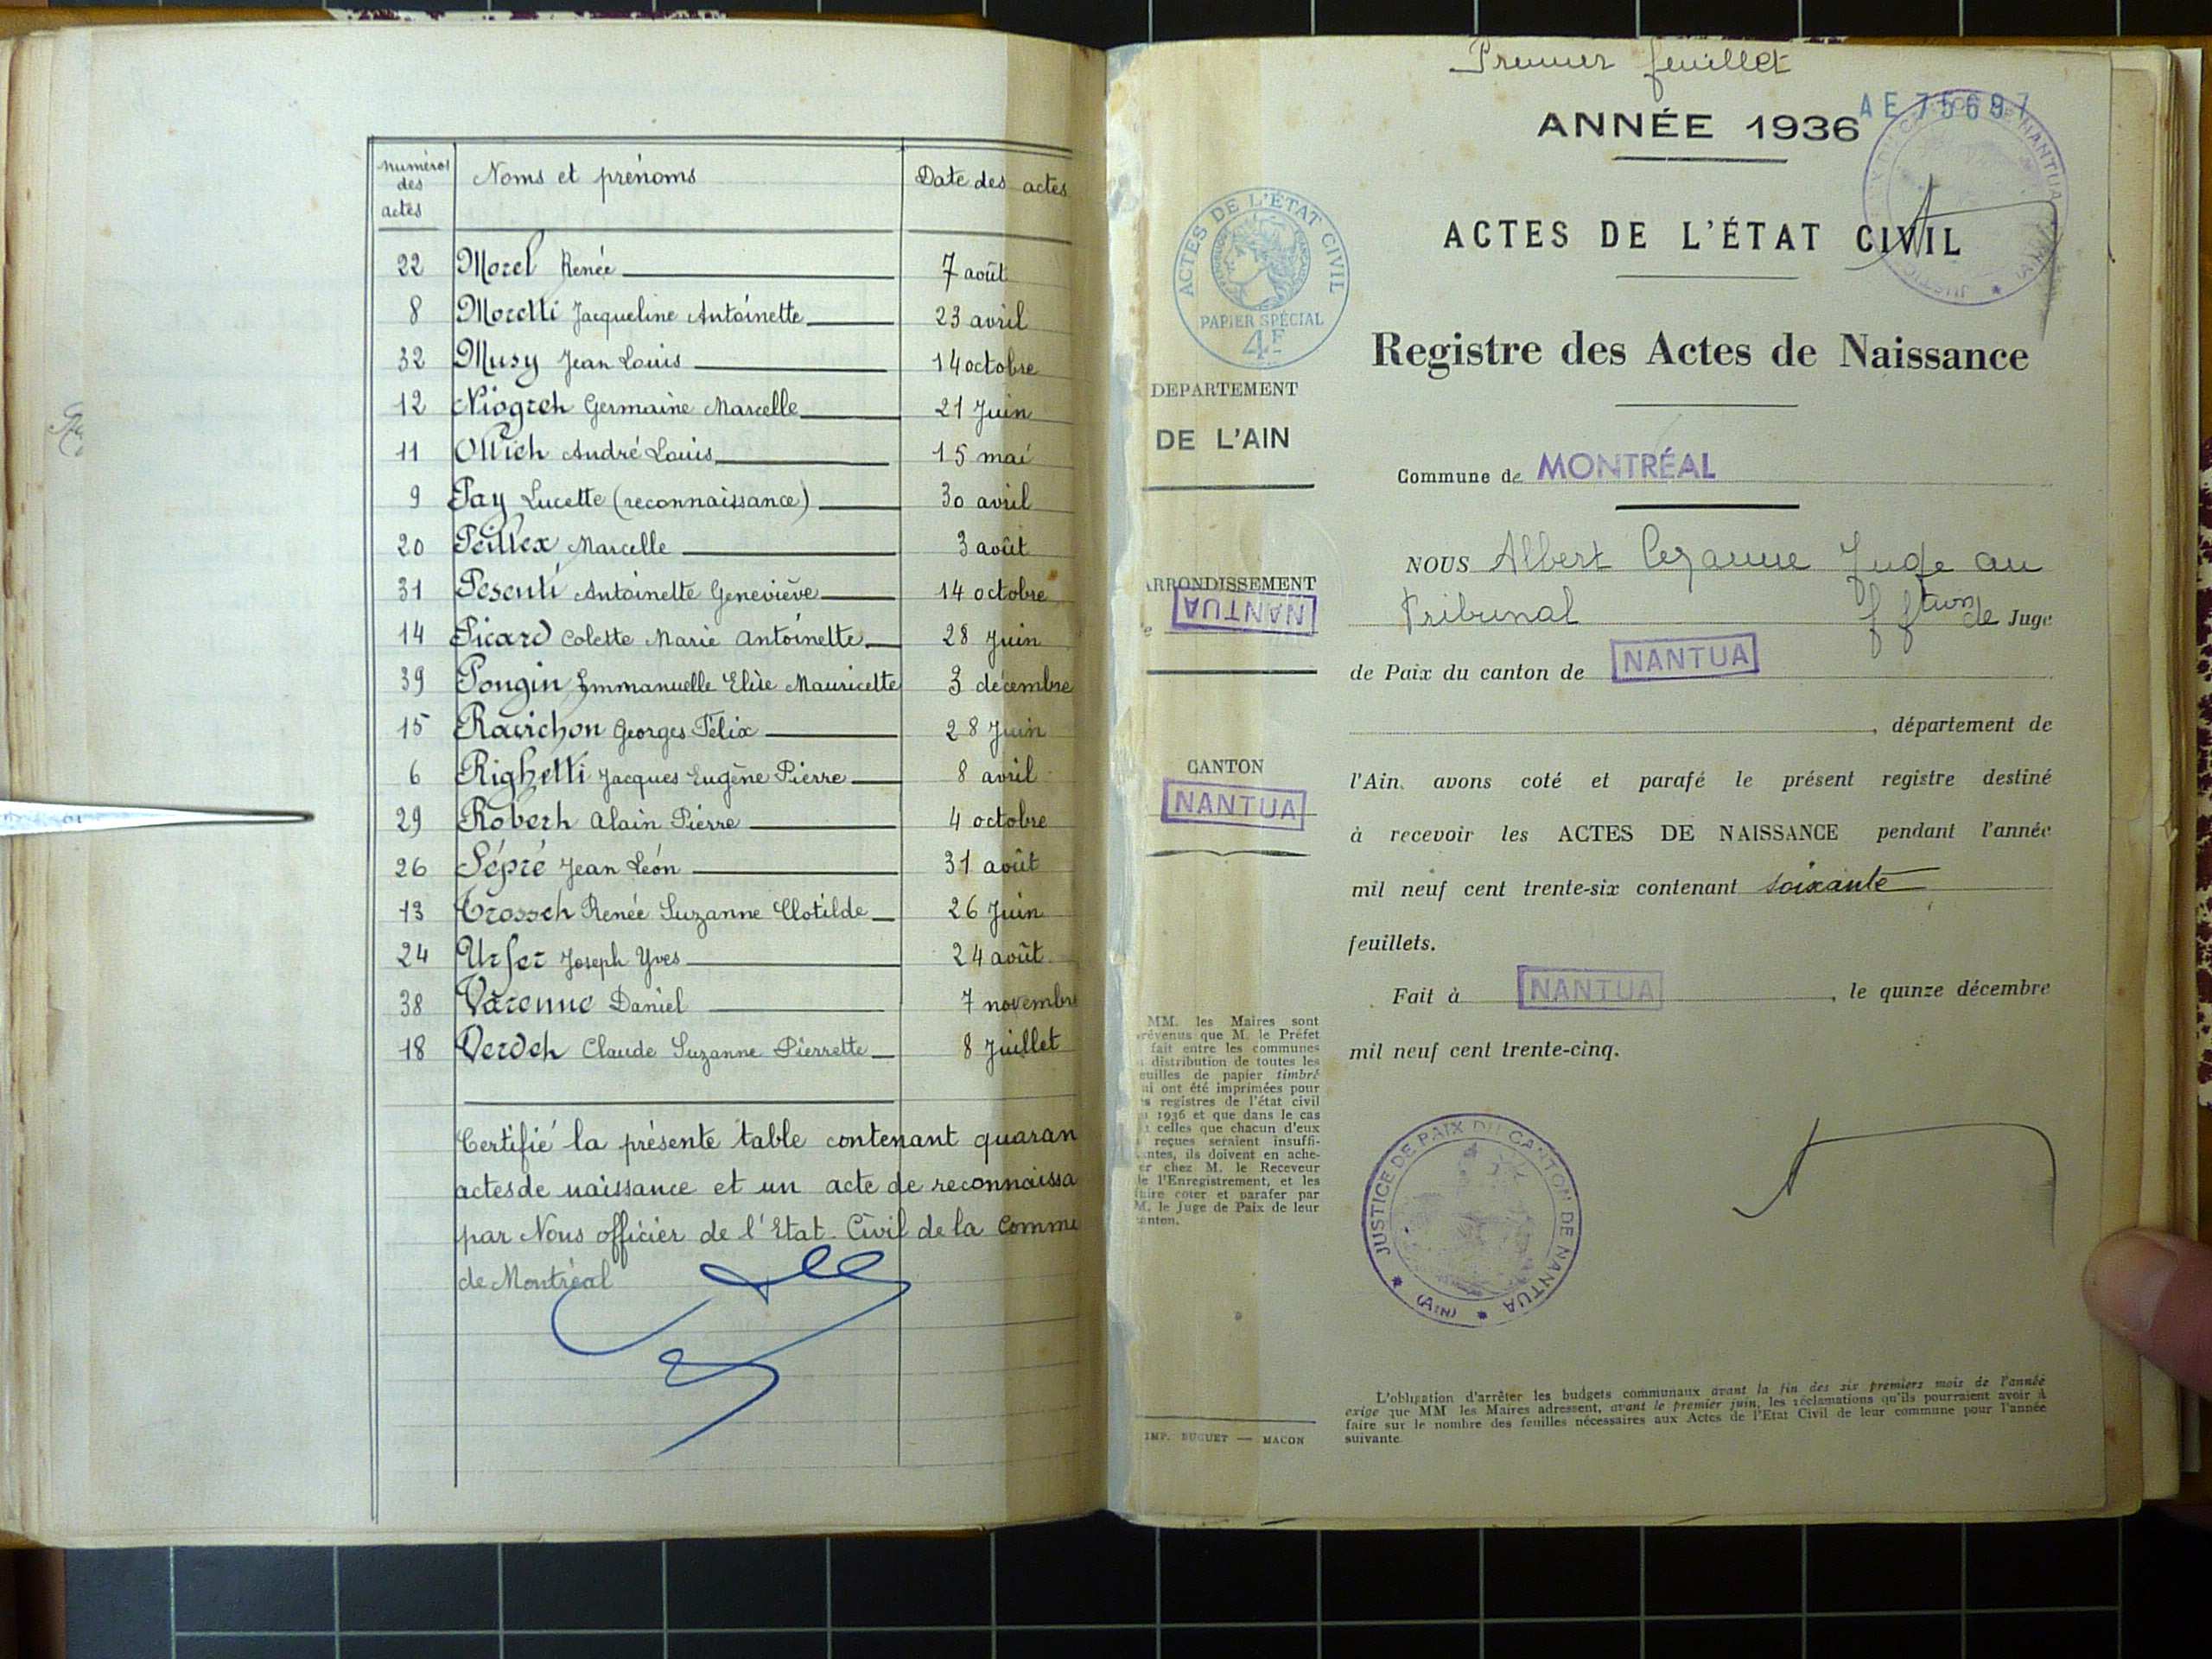 numéros des actes
Noms et prénoms
Date des actes
22 Morel Renée 7 août
8 Moretti Jacqueline Antoinette 23 avril
32 Musy Jean Louis 14 octobre
12 Niogret Germaine Marcelle 21 Juin
11 Ollich André Louis 15 mai
9 Pay Lucette (reconnaissance) 30 avril
20 Peillex Marcelle 3 août
31 Pesenti Antoinette Geneviève 14 octobre
14 Picard Colette Marie Antoinette 28 Juin
39 Pongin Emmanuelle Elise Mauricette 3 décembre
15 Ravichon Georges Félix 28 Juin
6 Righetti Jacques Eugène Pierre 8 avril
29 Robert Alain Pierre 4 octobre
26 Sépré Jean Léon 31 août
13 Trosset Renée Suzanne Clotilde 26 Juin
24 Urfer Joseph Yves 24 août
38 Varenne Daniel 7 novembr
18 Verdet Claude Suzanne Pierrette 8 Juillet
Certifié la présente table contenant quaran
actes de naissance et un acte de reconnaissa
par Nous officier de l'Etat Civil de la Commu
de Montréal
Premier feuillet
AE 75697
ANNÉE 1936
ACTES DE L'ÉTAT CIVIL
ACTES DE L'ÉTAT CIVIL
PAPIER SPÉCIAL
4F
Registre des Actes de Naissance
DEPARTEMENT
DE L'AIN
Commune de MONTRÉAL
NOUS Albert Cezanne Juge au
Tribunal f ftion de Juge
ARRONDISSEMENT
NANTUA
de Paix du canton de NANTUA
, département de
CANTON
NANTUA
l'Ain, avons coté et parafé le présent registre destiné
à recevoir les ACTES DE NAISSANCE pendant l'année
mil neuf cent trente-six contenant soixante
feuillets.
Fait à NANTUA, le quinze décembre
mil neuf cent trente-cinq.
MM. les Maires sont
révenus que M. le Préfet
fait entre les communes
a distribution de toutes les
euilles de papier timbré
ui ont été imprimées pour
s registres de l'état civil
1936 et que dans le cas
celles que chacun d'eux
reçues seraient insuffi-
antes, ils doivent en ache-
er chez M. le Receveur
de l'Enregistrement, et les
faire coter et parafer par
M. le Juge de Paix de leur
anton.
JUSTICE DE PAIX DU CANTON DE NANTUA
(AIN)
IMP. BUGUET — MACON
L'obligation d'arrêter les budgets communaux avant la fin des six premiers mois de l'année
exige que MM les Maires adressent, avant le premier juin, les réclamations qu'ils pourraient avoir à
faire sur le nombre des feuilles nécessaires aux Actes de l'Etat Civil de leur commune pour l'année
suivante